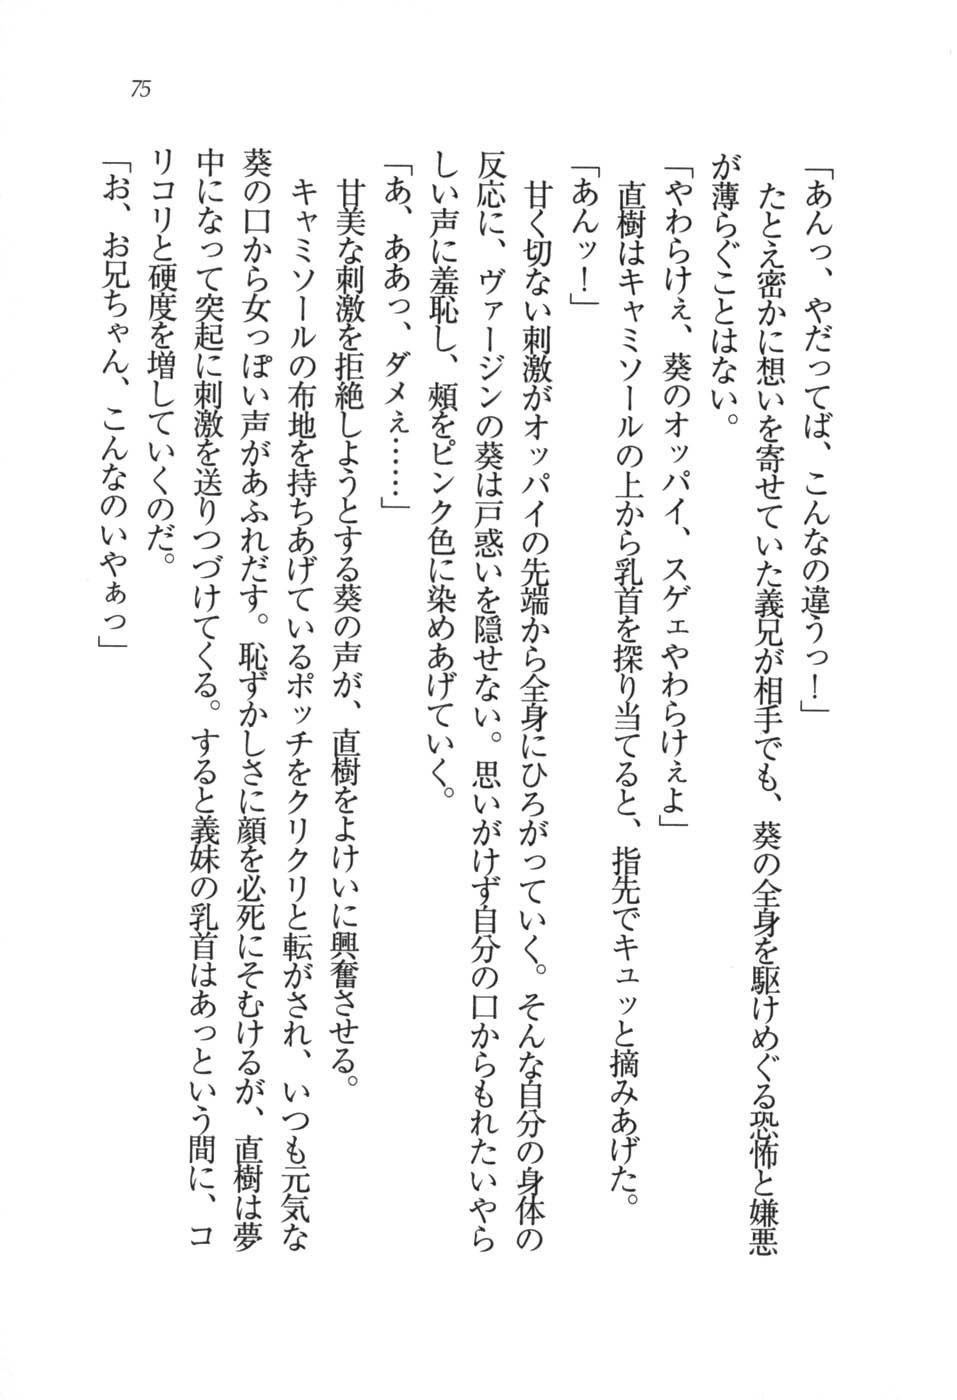 75
「あんっ、やだってば、こんなの違うっ！」
たとえ密かに想いを寄せていた義兄が相手でも、葵の全身を駆けめぐる恐怖と嫌悪
が薄らぐことはない。
「やわらけぇ、葵のオッパイ、スゲェやわらけぇよ」
直樹はキャミソールの上から乳首を探り当てると、指先でキュッと摘みあげた。
「あんッ！」
甘く切ない刺激がオッパイの先端から全身にひろがっていく。そんな自分の身体の
反応に、ヴァージンの葵は戸惑いを隠せない。思いがけず自分の口からもれたいやら
しい声に羞恥し、頰をピンク色に染めあげていく。
「あ、ああっ、ダメぇ……」
甘美な刺激を拒絶しようとする葵の声が、直樹をよけいに興奮させる。
キャミソールの布地を持ちあげているポッチをクリクリと転がされ、いつも元気な
葵の口から女っぽい声があふれだす。恥ずかしさに顔を必死にそむけるが、直樹は夢
中になって突起に刺激を送りつづけてくる。すると義妹の乳首はあっという間に、コ
リコリと硬度を増していくのだ。
「お、お兄ちゃん、こんなのいやぁっ」